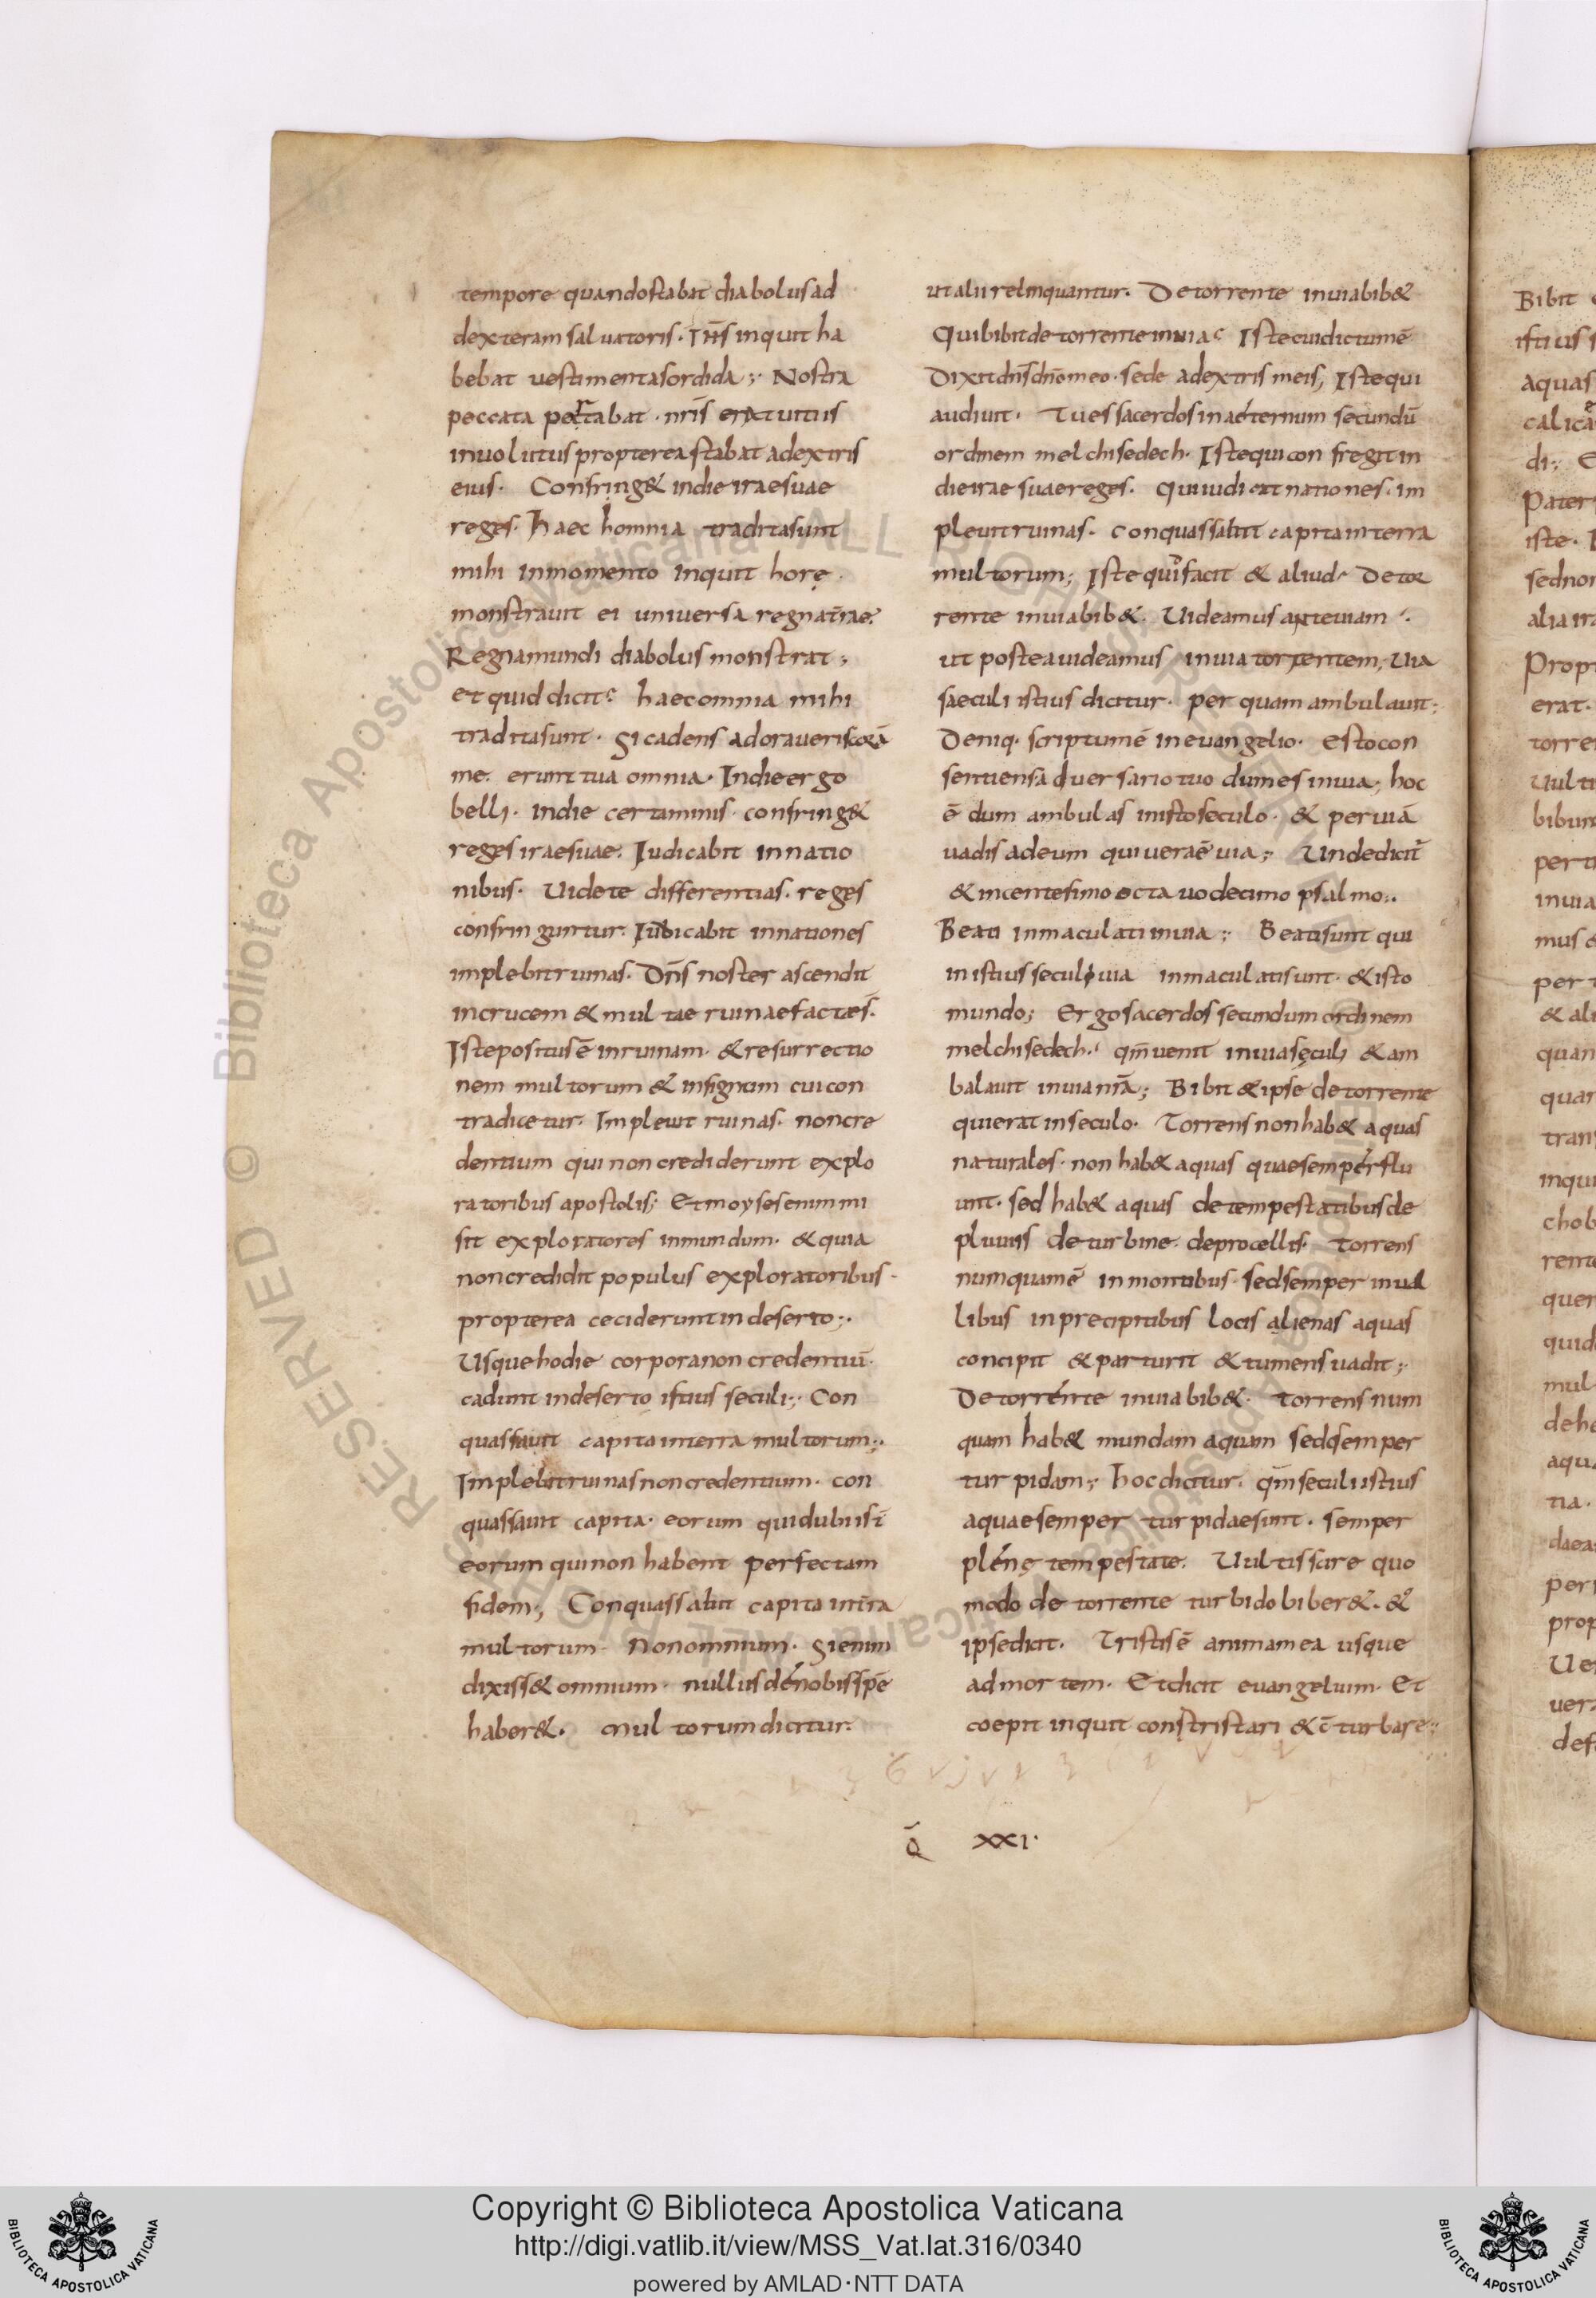 tempore quandostabat diabolusad
dexteram saluatoris· Ih̅s inquit ha
bebat uestimentasordida;· Nostra
peccata portabat· nr̅is erat uitiis
inuolutus proptereastabat adextris
eius· Confring& indie iraesuae
reges· haec homnia traditasunt
mihi inmomento inquit horę·
monstrauit ei uniuersa regnaterrae·
Regnamundi diabolus monstrat;
et quid dicit? haecomnia mihi
traditasunt· Sicadens adoraueriscorā
me· erunt tua omnia· Indieergo
belli· indie certaminis· confring&
reges iraesuae· Iudicabit innatio
nibus· Uidete differentias· reges
confringuntur· Iudicabit innationes
implebitruinas· Dn̅s noster ascendit
incrucem & multae ruinaefactaes̅·
Istepositusē inruinam· &resurrectio
nem multorum & insignum cuicon
tradicetur· Impleuit ruinas· noncre
dentium qui non crediderunt explo
ratoribus apostolis; Etmoysesenim mi
sit exploratores inmundum· &quia
noncredidit populus exploratoribus·
propterea ceciderunt indeserto;·
Usquehodie corporanon credentiū·
cadunt indeserto istius seculi;· Con
quassauit capitainterra multorum;·
Implebitruinasnoncredentium· con
quassauit capita· eorum quidubiis̅
eorum quinon habent perfectam
fidem; Conquassabit capita int̅ra
multorum· Nonomnium· Sienim
dixiss& omnium· nullus dénobisspē
haber&· Multorumdicitur·
ut alii relinquantur· Detorrente inuiabib&
Quibibitdetorrenteinuia? Istecuidictumē
Dixitdn̅sdn̅omeo· sede adextris meis; Istequi
audiuit· Tuessacerdosinaéternum secundū
ordinem melchisedech· Istequicon fregitin
dieirae suaereges· Quiiudicat nationes· im
pleuitruinas· conquassabit capitainterra
multorum; Iste quid facit & aliud? Detor
rente inuiabib&· Uideamus anteuiam·
ut posteauideamus inuia torrentem; Uia
saeculi istius dicitur· per quam ambulauit;
Deniq· scriptumē ineuangelio· estocon
sentiensaduersariotuo dumes inuia; hoc
ē dum ambulas inistoseculo· & peruiā
uadis adeum qui ueraē uia;· Undedicit̅
&incentesimo octauodecimo psalmo;·
Beati inmaculati inuia;· Beatisunt qui
inistius seculi uia inmaculatisunt· &isto
mundo; Ergosacerdos secundum ordinem
melchisedech· qm̅ uenit inuiasęculi &am
balauit inuianr̅ā; Bibit &ipse detorrente
quierat inseculo· Torrens nonhab& aquas
naturales· non hab& aquas quaesempérflu
unt· sed hab& aquas detempestatibusde
pluuiis deturbine· deprocellis· torrens
numquamē inmontibus· sedsemper inual
libus inprecipitibus locis alienas aquas
concipit &parturit &tumens uadit;·
Detorrénte inuiabib&· torrens num
quam hab& mundam aquam sedsemper
turpidam;· hocdicitur· qm̅ seculiistius
aquaesemper turpidaesunt· semper
plénę tempestate· Uultis scire quo
modo de torrente turbidobiber&· &
ipsedicit· Tristisē animamea usque
admortem· Etdicit euangelium· Et
coepit inquit constristari & c̅turbare;·
Q̅ XXI·
Copyright © Biblioteca Apostolica Vaticana
http://digi.vatlib.it/view/MSS_Vat.lat.316/0340
powered by AMLAD·NTT DATA